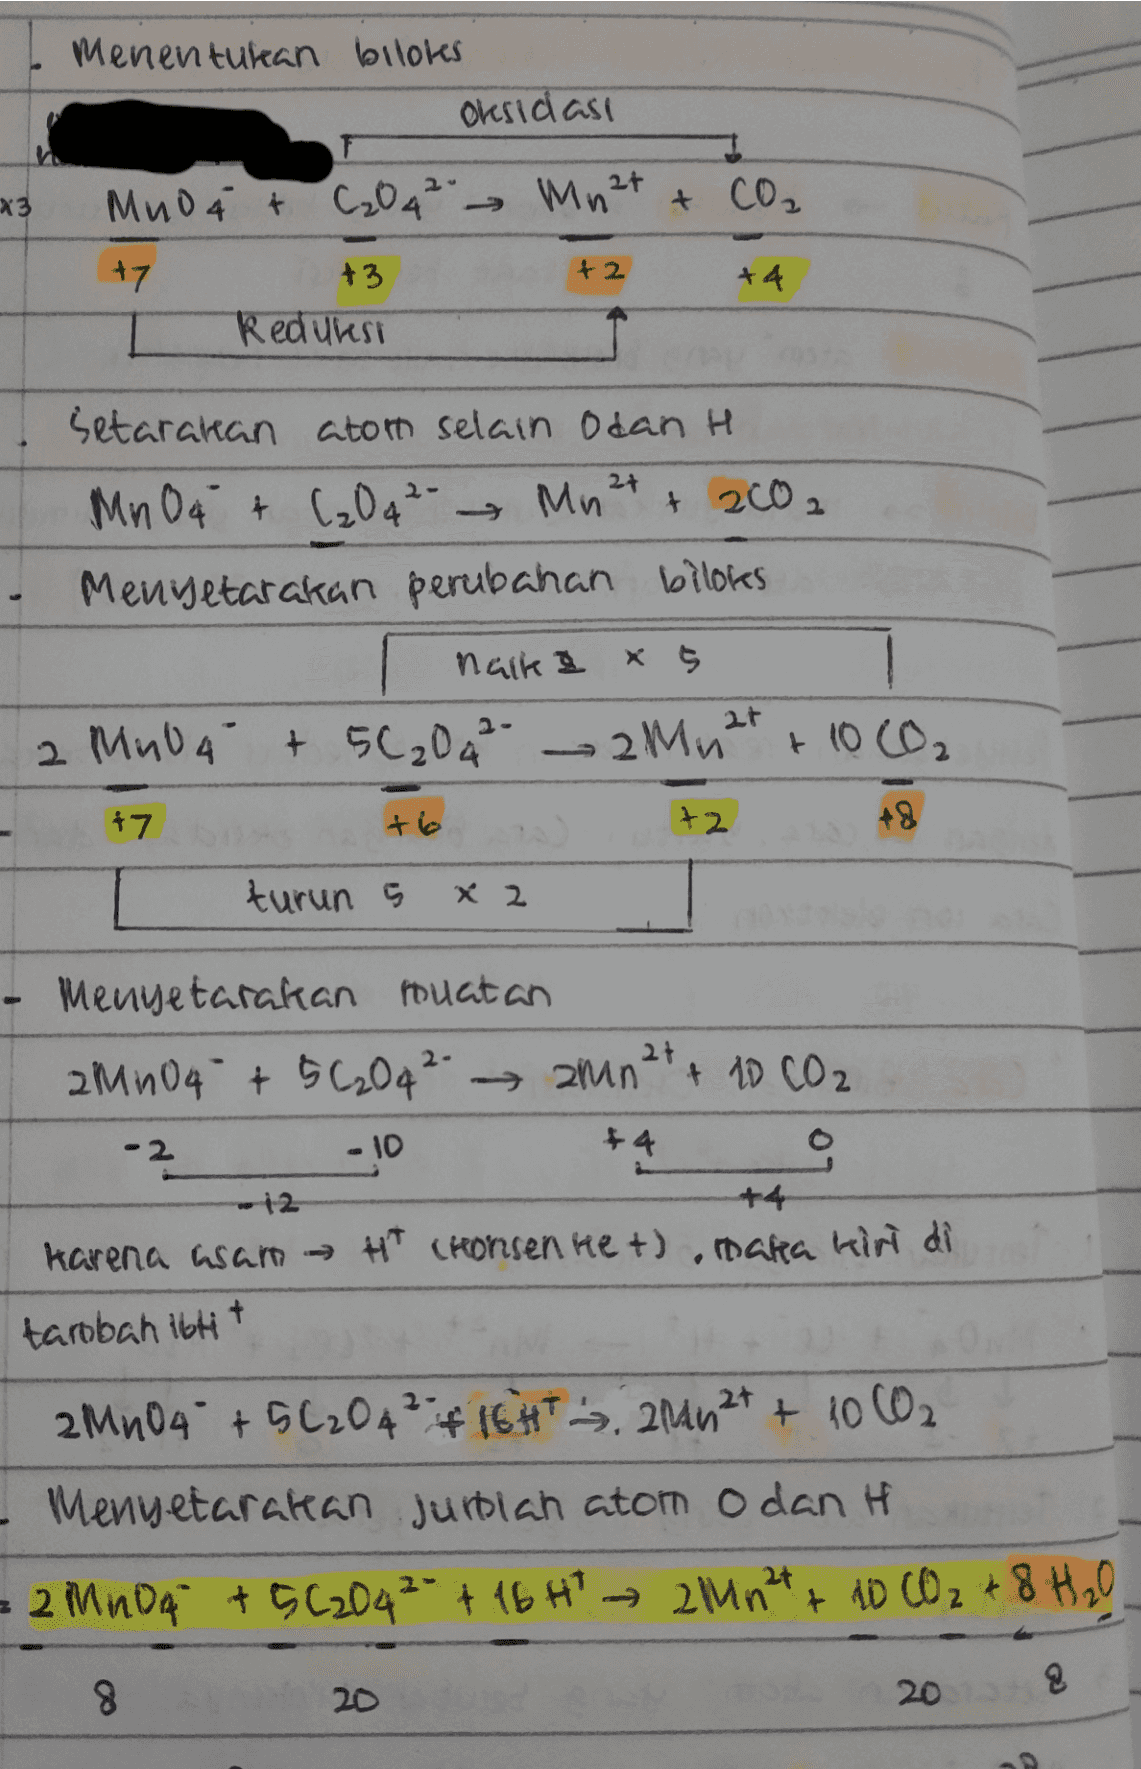 - Menentukan biloks
oksidasi
x3 MnO4⁻ + C2O4²⁻ → Mn²⁺ + CO2
+7 +3 +2 +4
Reduksi
. Setarakan atom selain O dan H
MnO4⁻ + C2O4²⁻ → Mn²⁺ + 2CO2
- Menyetarakan perubahan biloks
naik 2 x 5
2 MnO4⁻ + 5C2O4²⁻ → 2Mn²⁺ + 10 CO2
+7 +6 +2 +8
turun 5 x 2
- Menyetarakan muatan
2MnO4⁻ + 5C2O4²⁻ → 2Mn²⁺ + 10 CO2
-2 -10 +4 0
-12 +4
karena asam → H⁺ (konsen ke +), maka kiri di
tambah 16H⁺
2MnO4⁻ + 5C2O4²⁻ + 16H⁺ → 2Mn²⁺ + 10 CO2
- Menyetarakan jumlah atom O dan H
= 2 MnO4⁻ + 5C2O4²⁻ + 16 H⁺ → 2Mn²⁺ + 10 CO2 + 8 H2O
8 20 20 8